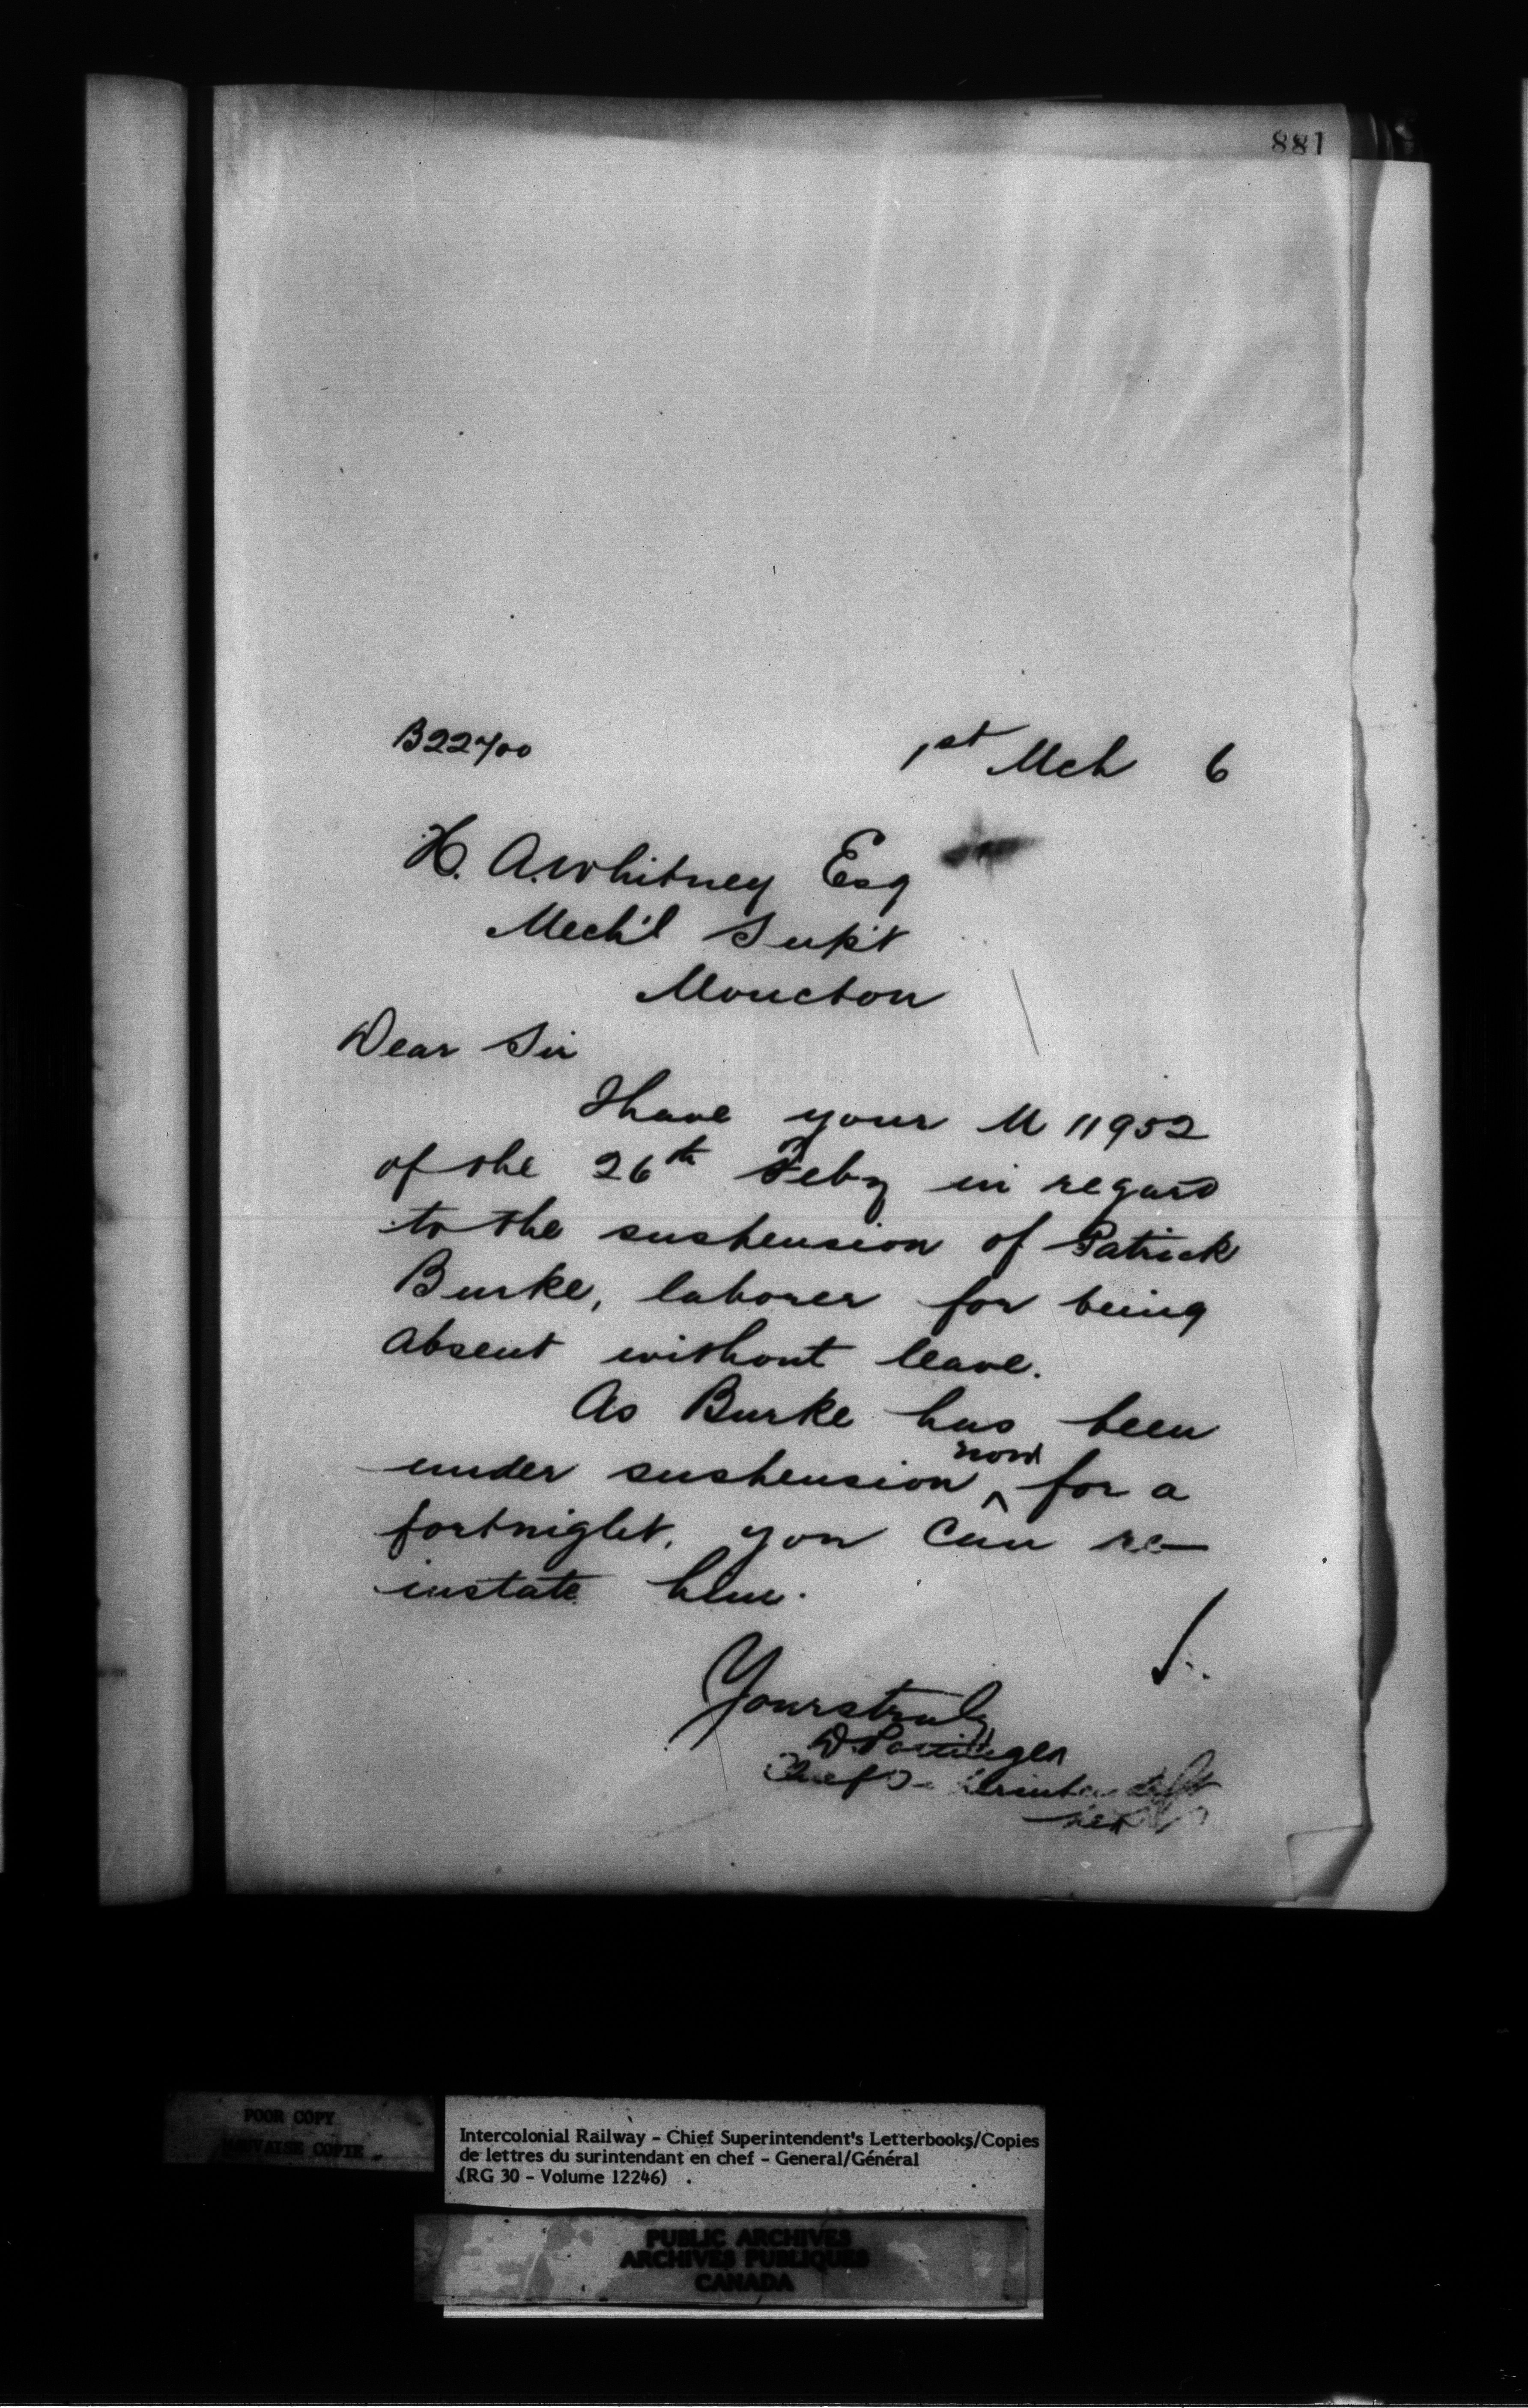 881
B22700 1st Mch 6
H. A. Whitney Esq
Mech'l Sup't
Moncton
Dear Sir
I have your M 11952
of the 26th Feby in regard
to the suspension of Patrick
Burke, laborer for being
absent without leave.
As Burke has been
under suspension now for a
fortnight, you can re-
instate him.
Yours truly
D. Pottinger
Chief Superintendent
POOR COPY
MAUVAISE COPIE
Intercolonial Railway - Chief Superintendent's Letterbooks/Copies
de lettres du surintendant en chef - General/Général
(RG 30 - Volume 12246)
PUBLIC ARCHIVES
ARCHIVES PUBLIQUES
CANADA